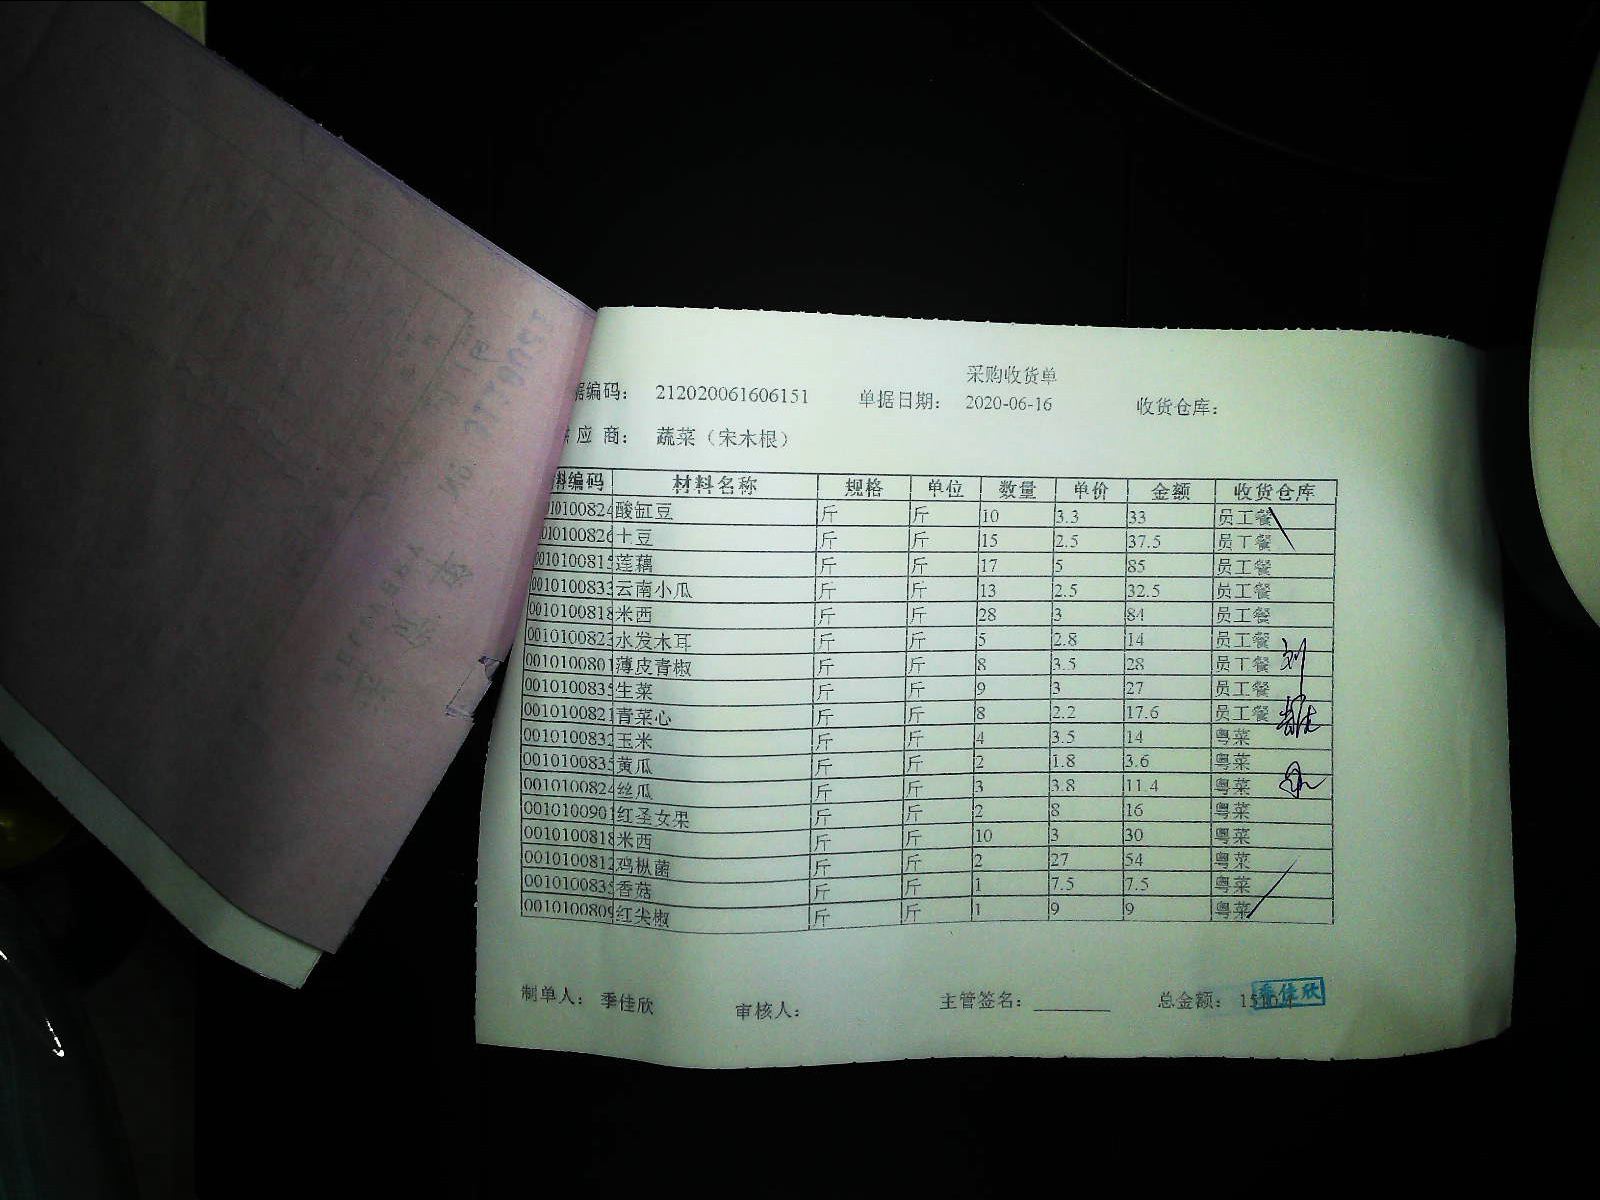 采购收货单
据编码： 212020061606151 单据日期： 2020-06-16 收货仓库：
应 商： 蔬菜（宋木根）
料编码 材料名称 规格 单位 数量 单价 金额 收货仓库
010100824 酸缸豆 斤 斤 10 3.3 33 员工餐
010100826 土豆 斤 斤 15 2.5 37.5 员工餐
001010081 莲藕 斤 斤 17 5 85 员工餐
001010083 云南小瓜 斤 斤 13 2.5 32.5 员工餐
0010100818 米西 斤 斤 28 3 84 员工餐
001010082 水发木耳 斤 斤 5 2.8 14 员工餐
0010100801 薄皮青椒 斤 斤 8 3.5 28 员工餐
001010083 生菜 斤 斤 9 3 27 员工餐
0010100821 青菜心 斤 斤 8 2.2 17.6 员工餐
0010100832 玉米 斤 斤 4 3.5 14 粤菜
001010083 黄瓜 斤 斤 2 1.8 3.6 粤菜
0010100824 丝瓜 斤 斤 3 3.8 11.4 粤菜
0010100901 红圣女果 斤 斤 2 8 16 粤菜
0010100818 米西 斤 斤 10 3 30 粤菜
0010100812 鸡枞菌 斤 斤 2 27 54 粤菜
001010083 香菇 斤 斤 1 7.5 7.5 粤菜
0010100809 红尖椒 斤 斤 1 9 9 粤菜
刘
制单人： 季佳欣 审核人： 主管签名： 总金额：
季佳欣